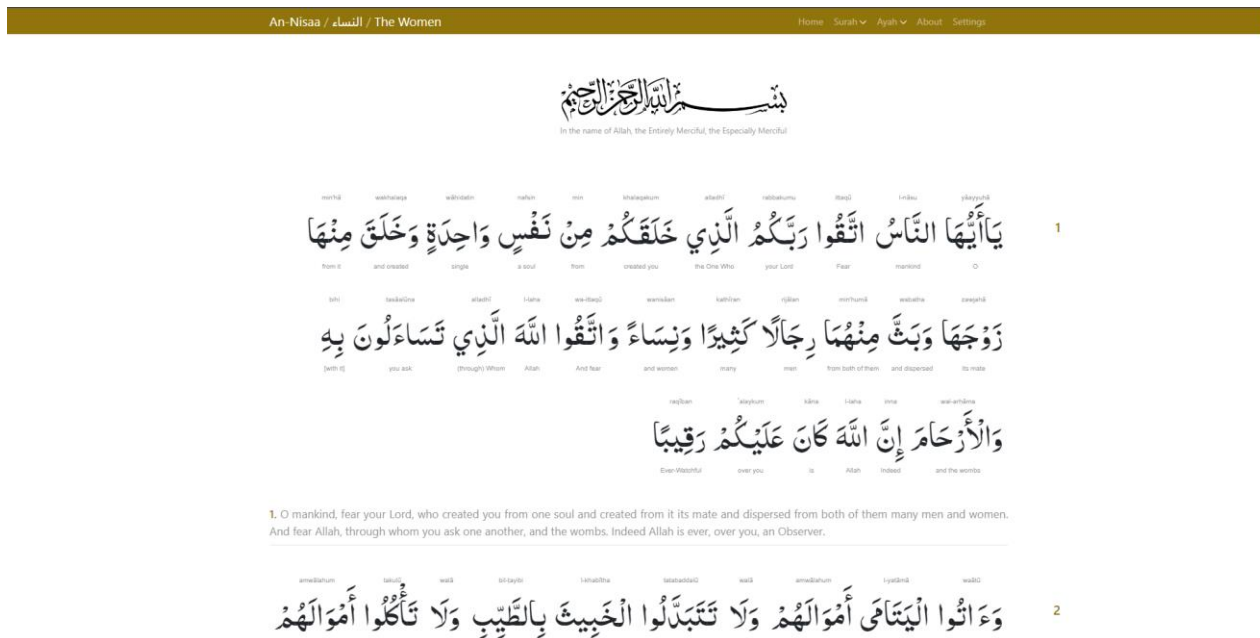 An-Nisaa / النساء / The Women
Home Surah Ayah About Settings
بِسْمِ اللَّهِ الرَّحْمَٰنِ الرَّحِيمِ
In the name of Allah, the Entirely Merciful, the Especially Merciful
yāayyuhā l-nāsu ittaqū rabbakumu alladhī khalaqakum min nafsin wāḥidatin wakhalaqa min'hā
يَاأَيُّهَا النَّاسُ اتَّقُوا رَبَّكُمُ الَّذِي خَلَقَكُمْ مِنْ نَفْسٍ وَاحِدَةٍ وَخَلَقَ مِنْهَا
1
O mankind Fear your Lord the One Who created you from a soul single and created from it
zawjahā wabatha min'humā rijālan kathīran wanisāan wa-ittaqū l-laha alladhī tasāalūna bihi
زَوْجَهَا وَبَثَّ مِنْهُمَا رِجَالًا كَثِيرًا وَنِسَاءً وَاتَّقُوا اللَّهَ الَّذِي تَسَاءَلُونَ بِهِ
its mate and dispersed from both of them men many and women And fear Allah (through) Whom you ask [with it]
wal-arḥāma inna l-laha kāna ʿalaykum raqīban
وَالْأَرْحَامَ إِنَّ اللَّهَ كَانَ عَلَيْكُمْ رَقِيبًا
and the wombs Indeed Allah is over you Ever-Watchful
1. O mankind, fear your Lord, who created you from one soul and created from it its mate and dispersed from both of them many men and women.
And fear Allah, through whom you ask one another, and the wombs. Indeed Allah is ever, over you, an Observer.
waātū l-yatāmā amwālahum walā tatabaddalū l-khabītha bil-ṭayibi walā takulū amwālahum
وَءَاتُوا الْيَتَامَى أَمْوَالَهُمْ وَلَا تَتَبَدَّلُوا الْخَبِيثَ بِالطَّيِّبِ وَلَا تَأْكُلُوا أَمْوَالَهُمْ
2